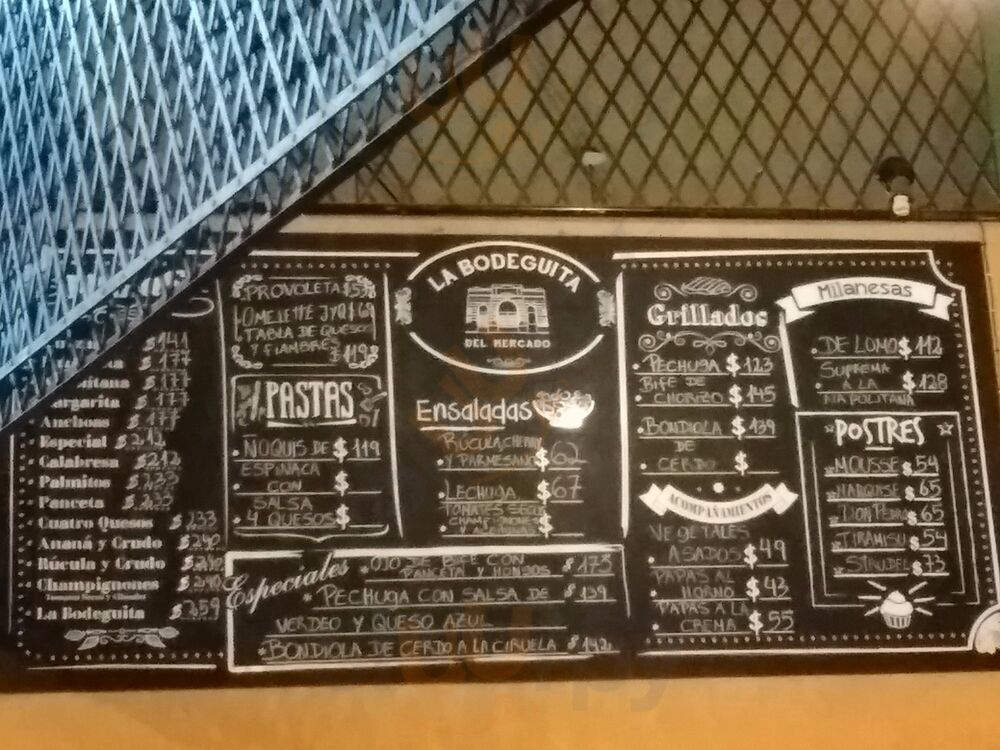 $141
$177
$177
$177
Anchoas
Especial $212
Calabresa $212
Palmitos $235
Panceta $225
Cuatro Quesos $233
Ananá y Crudo $240
Rúcula y Crudo
Champignones $240
La Bodeguita $259
PROVOLETA $59
OMELETTE JYQ
TABLA DE QUESOS
Y FIAMBRES $119
PASTAS
ÑOQUIS DE $119
ESPINACA
CON $
SALSA
4 QUESOS $
LA BODEGUITA
DEL MERCADO
Ensaladas
RUCULA CHERRY
Y PARMESANO $62
LECHUGA $67
TOMATES SECOS
CHAMPIGNONES
$
Especiales
OJO DE BIFE CON
PANCETA Y HONGOS $173
* PECHUGA CON SALSA DE $139
VERDEO Y QUESO AZUL
BONDIOLA DE CERDO A LA CIRUELA $142
Grillados
PECHUGA $123
BIFE DE
CHORIZO $145
BONDIOLA $139
DE
CERDO $
ACOMPAÑAMIENTOS
VEGETALES
ASADOS $49
PAPAS AL
HORNO $43
PAPAS A LA
CREMA $55
Milanesas
DE LOMO $112
SUPREMA
A LA $128
NAPOLITANA
POSTRES
MOUSSE $54
MARQUISE $65
DON PEDRO $65
TIRAMISU $54
STRUDEL $73